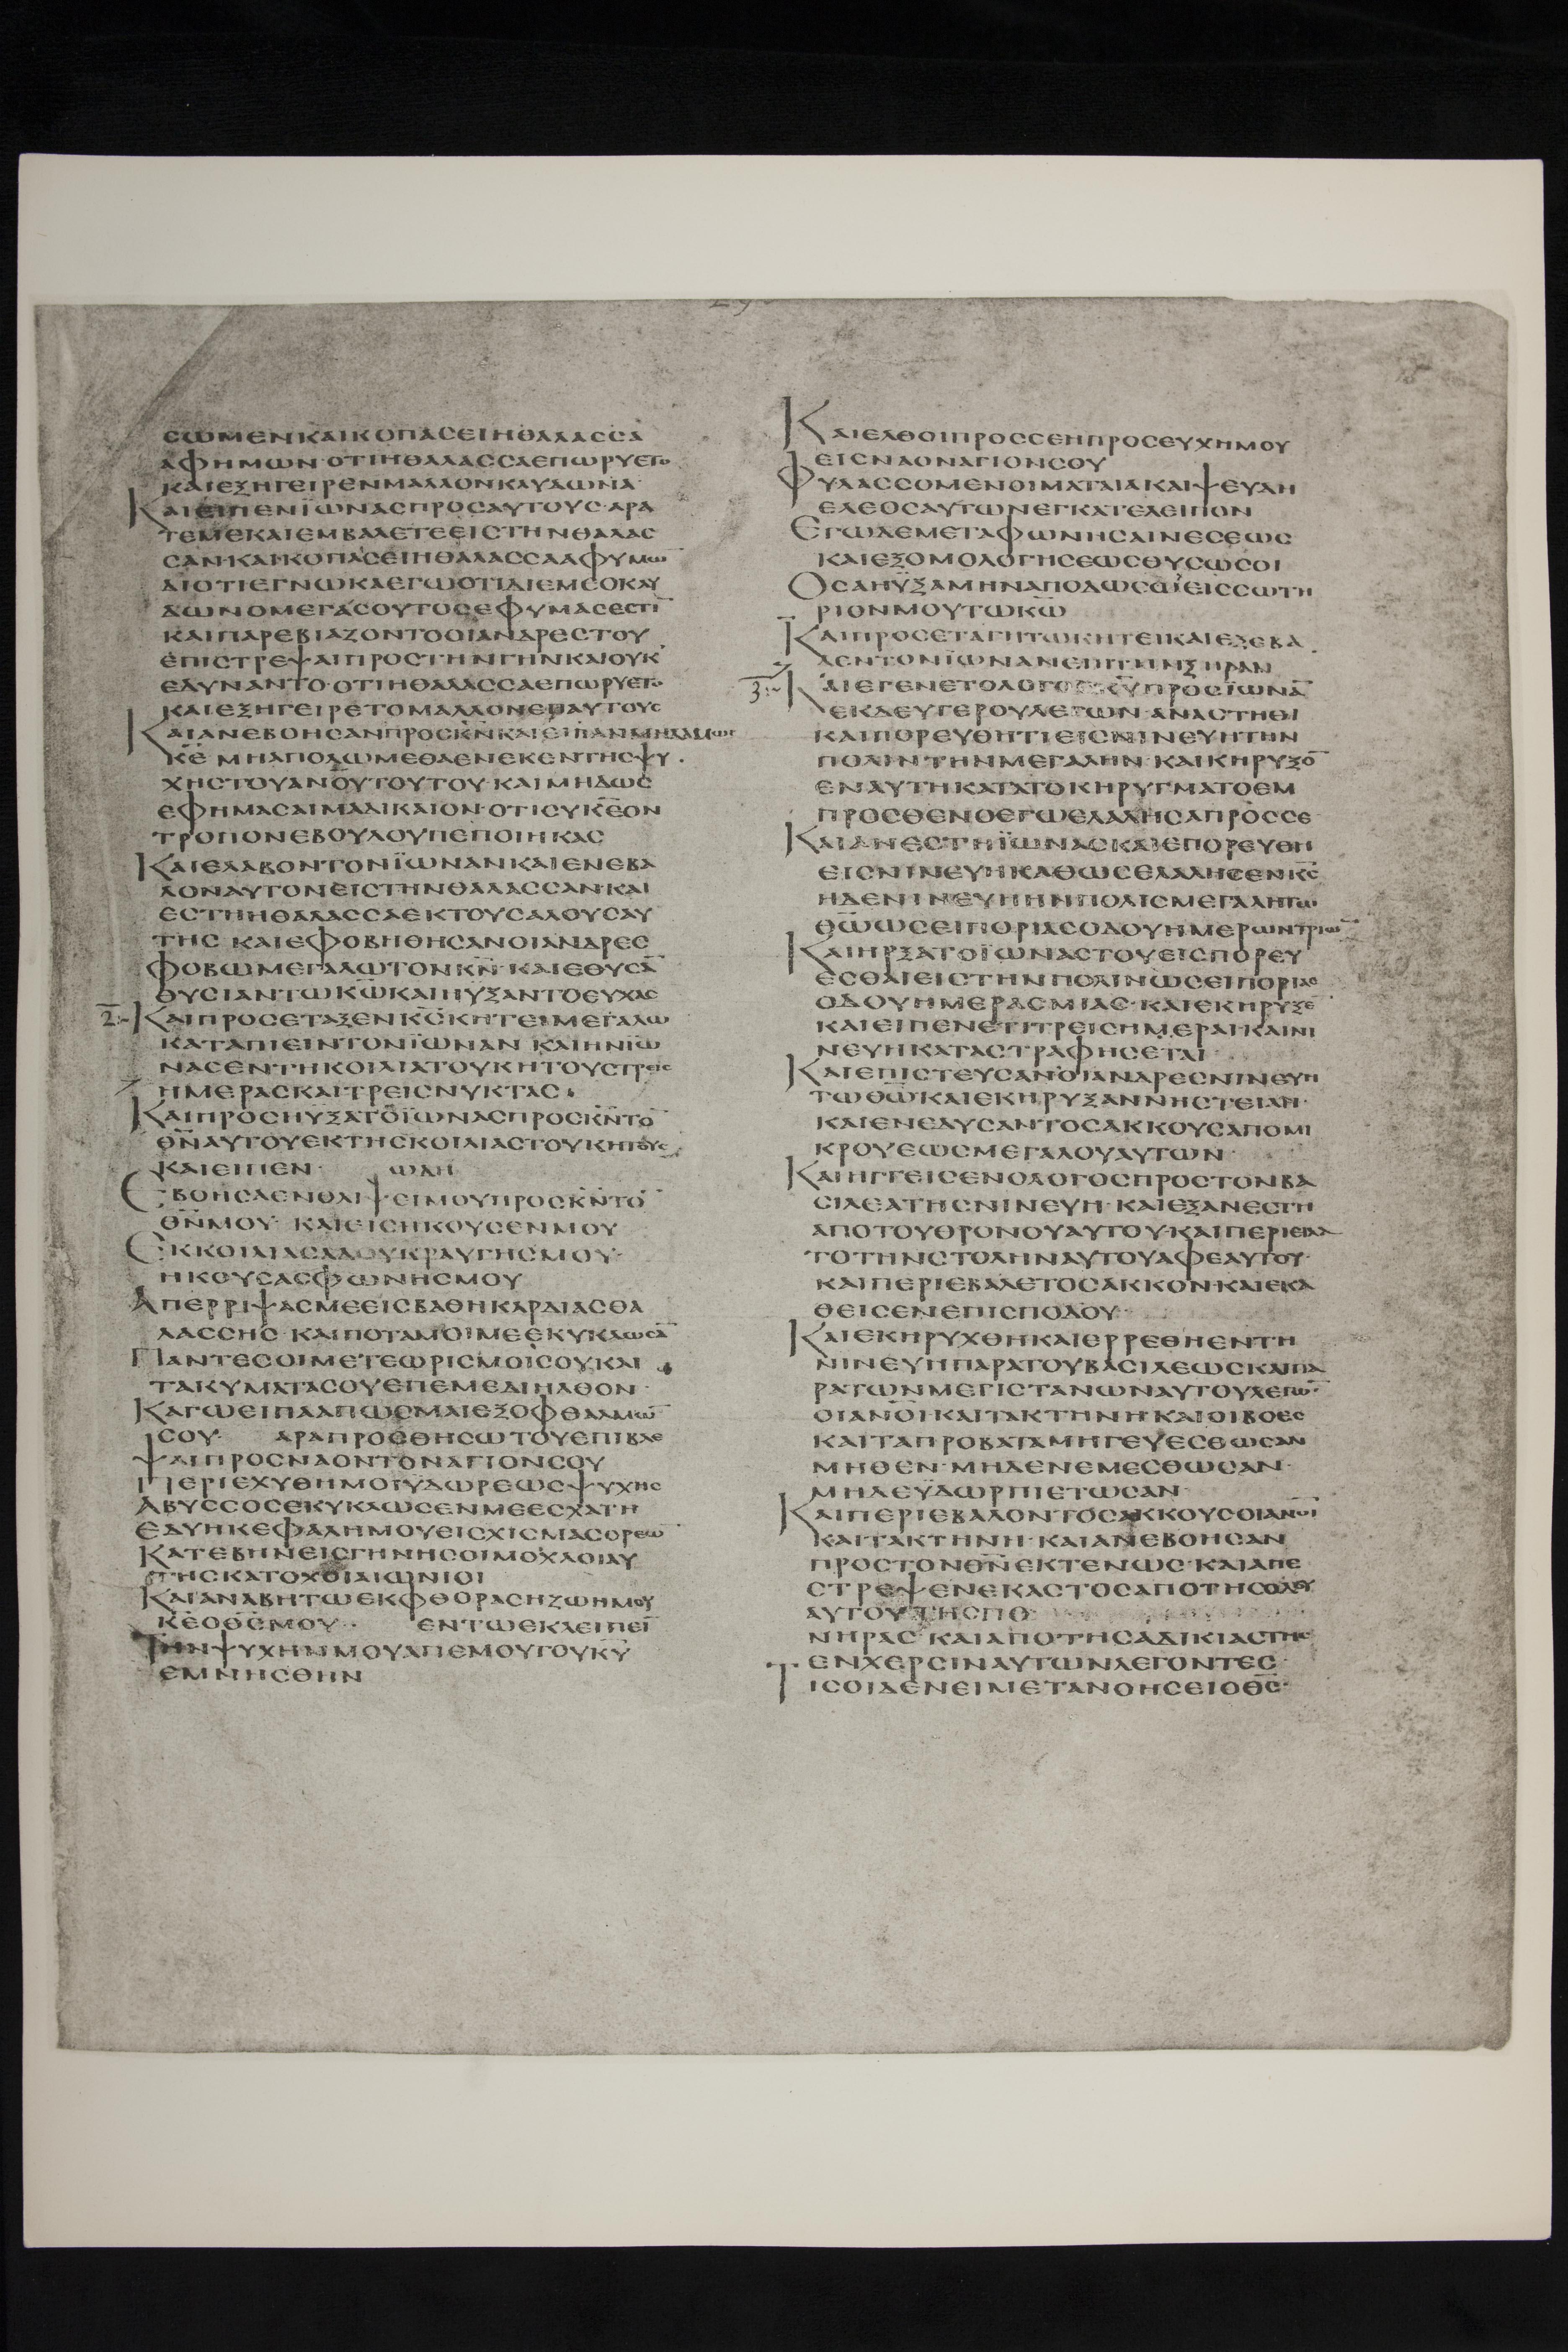 ΣΩΜΕΝΚΑΙΚΟΠΑΣΕΙΗΘΑΛΑΣΣΑ
ΑΦΗΜΩΝ·ΟΤΙΗΘΑΛΑΣΣΑΕΠΩΡΥΕΤΟ
ΚΑΙΕΞΗΓΕΙΡΕΝΜΑΛΛΟΝΚΛΥΔΩΝΑ·
ΚΑΙΕΙΠΕΝΪΩΝΑΣΠΡΟΣΑΥΤΟΥΣ·ΑΡΑ
ΤΕΜΕΚΑΙΕΜΒΑΛΕΤΕΕΙΣΤΗΝΘΑΛΑΣ
ΣΑΝ·ΚΑΙΚΟΠΑΣΕΙΗΘΑΛΑΣΣΑΑΦΥΜΩ̅
ΔΙΟΤΙΕΓΝΩΚΑΕΓΩΟΤΙΔΙΕΜΕΟΚΛΥ
ΔΩΝΟΜΕΓΑΣΟΥΤΟΣΕΦΥΜΑΣΕΣΤΙ̅
ΚΑΙΠΑΡΕΒΙΑΖΟΝΤΟΟΙΑΝΔΡΕΣΤΟΥ
ΕΠΙΣΤΡΕΨΑΙΠΡΟΣΤΗΝΓΗΝΚΑΙΟΥΚ
ΕΔΥΝΑΝΤΟ·ΟΤΙΗΘΑΛΑΣΣΑΕΠΩΡΥΕΤΟ
ΚΑΙΕΞΗΓΕΙΡΕΤΟΜΑΛΛΟΝΕΠΑΥΤΟΥΣ
ΚΑΙΑΝΕΒΟΗΣΑΝΠΡΟΣΚ̅Ν̅ΚΑΙΕΙΠΑΝΜΗΔΑΜΩΣ
Κ̅Ε̅ΜΗΑΠΟΛΩΜΕΘΑΕΝΕΚΕΝΤΗΣΨΥ
ΧΗΣΤΟΥΑ̅Ν̅Ο̅Υ̅ΤΟΥΤΟΥ·ΚΑΙΜΗΔΩΣ
ΕΦΗΜΑΣΑΙΜΑΔΙΚΑΙΟΝ·ΟΤΙΣΥΚ̅Ε̅ΟΝ
ΤΡΟΠΟΝΕΒΟΥΛΟΥΠΕΠΟΙΗΚΑΣ
ΚΑΙΕΛΑΒΟΝΤΟΝΪΩΝΑΝΚΑΙΕΝΕΒΑ
ΛΟΝΑΥΤΟΝΕΙΣΤΗΝΘΑΛΑΣΣΑΝ·ΚΑΙ
ΕΣΤΗΗΘΑΛΑΣΣΑΕΚΤΟΥΣΑΛΟΥΣΑΥ
ΤΗΣ ΚΑΙΕΦΟΒΗΘΗΣΑΝΟΙΑΝΔΡΕΣ
ΦΟΒΩΜΕΓΑΛΩΤΟΝΚ̅Ν̅·ΚΑΙΕΘΥΣΑ̅
ΘΥΣΙΑΝΤΩΚ̅Ω̅ΚΑΙΗΥΞΑΝΤΟΕΥΧΑΣ
2:- ΚΑΙΠΡΟΣΕΤΑΞΕΝΚ̅Σ̅ΚΗΤΕΙΜΕΓΑΛΩ
ΚΑΤΑΠΙΕΙΝΤΟΝΪΩΝΑΝ ΚΑΙΗΝΪΩ
ΝΑΣΕΝΤΗΚΟΙΛΙΑΤΟΥΚΗΤΟΥΣΤΡΕΙΣ
ΗΜΕΡΑΣΚΑΙΤΡΕΙΣΝΥΚΤΑΣ·
ΚΑΙΠΡΟΣΗΥΞΑΤΟΪΩΝΑΣΠΡΟΣΚ̅Ν̅ΤΟ̅
Θ̅Ν̅ΑΥΤΟΥΕΚΤΗΣΚΟΙΛΙΑΣΤΟΥΚΗΤΟΥΣ
ΚΑΙΕΙΠΕΝ· ΩΔΗ
ΕΒΟΗΣΑΕΝΘΛΙΨΕΙΜΟΥΠΡΟΣΚ̅Ν̅ΤΟ̅
Θ̅Ν̅ΜΟΥ· ΚΑΙΕΙΣΗΚΟΥΣΕΝΜΟΥ
ΕΚΚΟΙΛΙΑΣΑΔΟΥΚΡΑΥΓΗΣΜΟΥ·
ΗΚΟΥΣΑΣΦΩΝΗΣΜΟΥ
ΑΠΕΡΡΙΨΑΣΜΕΕΙΣΒΑΘΗΚΑΡΔΙΑΣΘΑ
ΛΑΣΣΗΣ·ΚΑΙΠΟΤΑΜΟΙΜΕΕΚΥΚΛΩΣΑ̅
ΠΑΝΤΕΣΟΙΜΕΤΕΩΡΙΣΜΟΙΣΟΥΚΑΙ
ΤΑΚΥΜΑΤΑΣΟΥΕΠΕΜΕΔΙΗΛΘΟΝ·
ΚΑΓΩΕΙΠΑΑΠΩΣΜΑΙΕΞΟΦΘΑΛΜΩ̅
ΣΟΥ· ΑΡΑΠΡΟΣΘΗΣΩΤΟΥΕΠΙΒΛΕ
ΨΑΙΠΡΟΣΝΑΟΝΤΟΝΑΓΙΟΝΣΟΥ
ΠΕΡΙΕΧΥΘΗΜΟΙΫΔΩΡΕΩΣΨΥΧΗΣ
ΑΒΥΣΣΟΣΕΚΥΚΛΩΣΕΝΜΕΕΣΧΑΤΗ
ΕΔΥΗΚΕΦΑΛΗΜΟΥΕΙΣΧΙΣΜΑΣΟΡΕΩ̅
ΚΑΤΕΒΗΝΕΙΣΓΗΝΗΣΟΙΜΟΧΛΟΙΑΥ
ΤΗΣΚΑΤΟΧΟΙΑΙΩΝΙΟΙ
ΚΑΙΑΝΑΒΗΤΩΕΚΦΘΟΡΑΣΗΖΩΗΜΟΥ
Κ̅Ε̅ΟΘ̅Σ̅ΜΟΥ· ΕΝΤΩΕΚΛΕΙΠΕΙ̅
ΤΗΝΨΥΧΗΝΜΟΥΑΠΕΜΟΥΤΟΥΚ̅Υ̅
ΕΜΝΗΣΘΗΝ
ΚΑΙΕΛΘΟΙΠΡΟΣΣΕΗΠΡΟΣΕΥΧΗΜΟΥ
ΕΙΣΝΑΟΝΑΓΙΟΝΣΟΥ
ΦΥΛΑΣΣΟΜΕΝΟΙΜΑΤΑΙΑΚΑΙΨΕΥΔΗ
ΕΛΕΟΣΑΥΤΩΝΕΓΚΑΤΕΛΕΙΠΟΝ
ΕΓΩΔΕΜΕΤΑΦΩΝΗΣΑΙΝΕΣΕΩΣ
ΚΑΙΕΞΟΜΟΛΟΓΗΣΕΩΣΘΥΣΩΣΟΙ
ΟΣΑΗΫΞΑΜΗΝΑΠΟΔΩΣΩΕΙΣΣΩΤΗ
ΡΙΟΝΜΟΥΤΩΚ̅Ω̅
ΚΑΙΠΡΟΣΕΤΑΓΗΤΩΚΗΤΕΙΚΑΙΕΞΕΒΑ
ΛΕΝΤΟΝΪΩΝΑΝΕΠΙΤΗΝΞΗΡΑΝ
3:- ΚΑΙΕΓΕΝΕΤΟΛΟΓΟΣΚ̅Υ̅ΠΡΟΣΪΩΝΑ̅
ΕΚΔΕΥΤΕΡΟΥΛΕΓΩΝ·ΑΝΑΣΤΗΘΙ
ΚΑΙΠΟΡΕΥΘΗΤΙΕΙΣΝΙΝΕΥΗΤΗΝ
ΠΟΛΙΝΤΗΝΜΕΓΑΛΗΝ·ΚΑΙΚΗΡΥΞΟ̅
ΕΝΑΥΤΗΚΑΤΑΤΟΚΗΡΥΓΜΑΤΟΕΜ
ΠΡΟΣΘΕΝΟΕΓΩΕΛΑΛΗΣΑΠΡΟΣΣΕ
ΚΑΙΑΝΕΣΤΗΪΩΝΑΣΚΑΙΕΠΟΡΕΥΘΗ
ΕΙΣΝΙΝΕΥΗΚΑΘΩΣΕΛΑΛΗΣΕΝΚ̅Σ̅
ΗΔΕΝΙΝΕΥΗΗΝΠΟΛΙΣΜΕΓΑΛΗΤΩ
Θ̅Ω̅ΩΣΕΙΠΟΡΙΑΣΟΔΟΥΗΜΕΡΩΝΤΡΙΩ̅
ΚΑΙΗΡΞΑΤΟΪΩΝΑΣΤΟΥΕΙΣΠΟΡΕΥ
ΕΣΘΑΙΕΙΣΤΗΝΠΟΛΙΝΩΣΕΙΠΟΡΙΑΣ
ΟΔΟΥΗΜΕΡΑΣΜΙΑΣ·ΚΑΙΕΚΗΡΥΞΕ̅
ΚΑΙΕΙΠΕΝΕΤΙΤΡΕΙΣΗΜΕΡΑΙ·ΚΑΙΝΙ
ΝΕΥΗΚΑΤΑΣΤΡΑΦΗΣΕΤΑΙ
ΚΑΙΕΠΙΣΤΕΥΣΑΝΟΙΑΝΔΡΕΣΝΙΝΕΥΗ
ΤΩΘ̅Ω̅ΚΑΙΕΚΗΡΥΞΑΝΝΗΣΤΕΙΑΝ·
ΚΑΙΕΝΕΔΥΣΑΝΤΟΣΑΚΚΟΥΣΑΠΟΜΙ
ΚΡΟΥΕΩΣΜΕΓΑΛΟΥΑΥΤΩΝ
ΚΑΙΗΓΓΕΙΣΕΝΟΛΟΓΟΣΠΡΟΣΤΟΝΒΑ
ΣΙΛΕΑΤΗΣΝΙΝΕΥΗ·ΚΑΙΕΞΑΝΕΣΤΗ
ΑΠΟΤΟΥΘΡΟΝΟΥΑΥΤΟΥ·ΚΑΙΠΕΡΙΕΙΛΑ
ΤΟΤΗΝΣΤΟΛΗΝΑΥΤΟΥΑΦΕΑΥΤΟΥ·
ΚΑΙΠΕΡΙΕΒΑΛΕΤΟΣΑΚΚΟΝ·ΚΑΙΕΚΑ
ΘΕΙΣΕΝΕΠΙΣΠΟΔΟΥ
ΚΑΙΕΚΗΡΥΧΘΗΚΑΙΕΡΡΕΘΗΕΝΤΗ
ΝΙΝΕΥΗΠΑΡΑΤΟΥΒΑΣΙΛΕΩΣΚΑΙΠΑ
ΡΑΤΩΝΜΕΓΙΣΤΑΝΩΝΑΥΤΟΥΛΕΓΩ̅·
ΟΙΑ̅Ν̅Ο̅Ι̅ΚΑΙΤΑΚΤΗΝΗΚΑΙΟΙΒΟΕΣ
ΚΑΙΤΑΠΡΟΒΑΤΑΜΗΓΕΥΕΣΘΩΣΑΝ
ΜΗΘΕΝ·ΜΗΔΕΝΕΜΕΣΘΩΣΑΝ·
ΜΗΔΕΫΔΩΡΠΙΕΤΩΣΑΝ
ΚΑΙΠΕΡΙΕΒΑΛΟΝΤΟΣΑΚΚΟΥΣΟΙΑ̅Ν̅Ο̅Ι̅
ΚΑΙΤΑΚΤΗΝΗ·ΚΑΙΑΝΕΒΟΗΣΑΝ
ΠΡΟΣΤΟΝΘ̅Ν̅ΕΚΤΕΝΩΣ·ΚΑΙΑΠΕ
ΣΤΡΕΨΕΝΕΚΑΣΤΟΣΑΠΟΤΗΣΟΔΟΥ
ΑΥΤΟΥΤΗΣΠΟ
ΝΗΡΑΣ·ΚΑΙΑΠΟΤΗΣΑΔΙΚΙΑΣΤΗΣ
ΕΝΧΕΡΣΙΝΑΥΤΩΝΛΕΓΟΝΤΕΣ·
ΤΙΣΟΙΔΕΝΕΙΜΕΤΑΝΟΗΣΕΙΟΘ̅Σ̅·